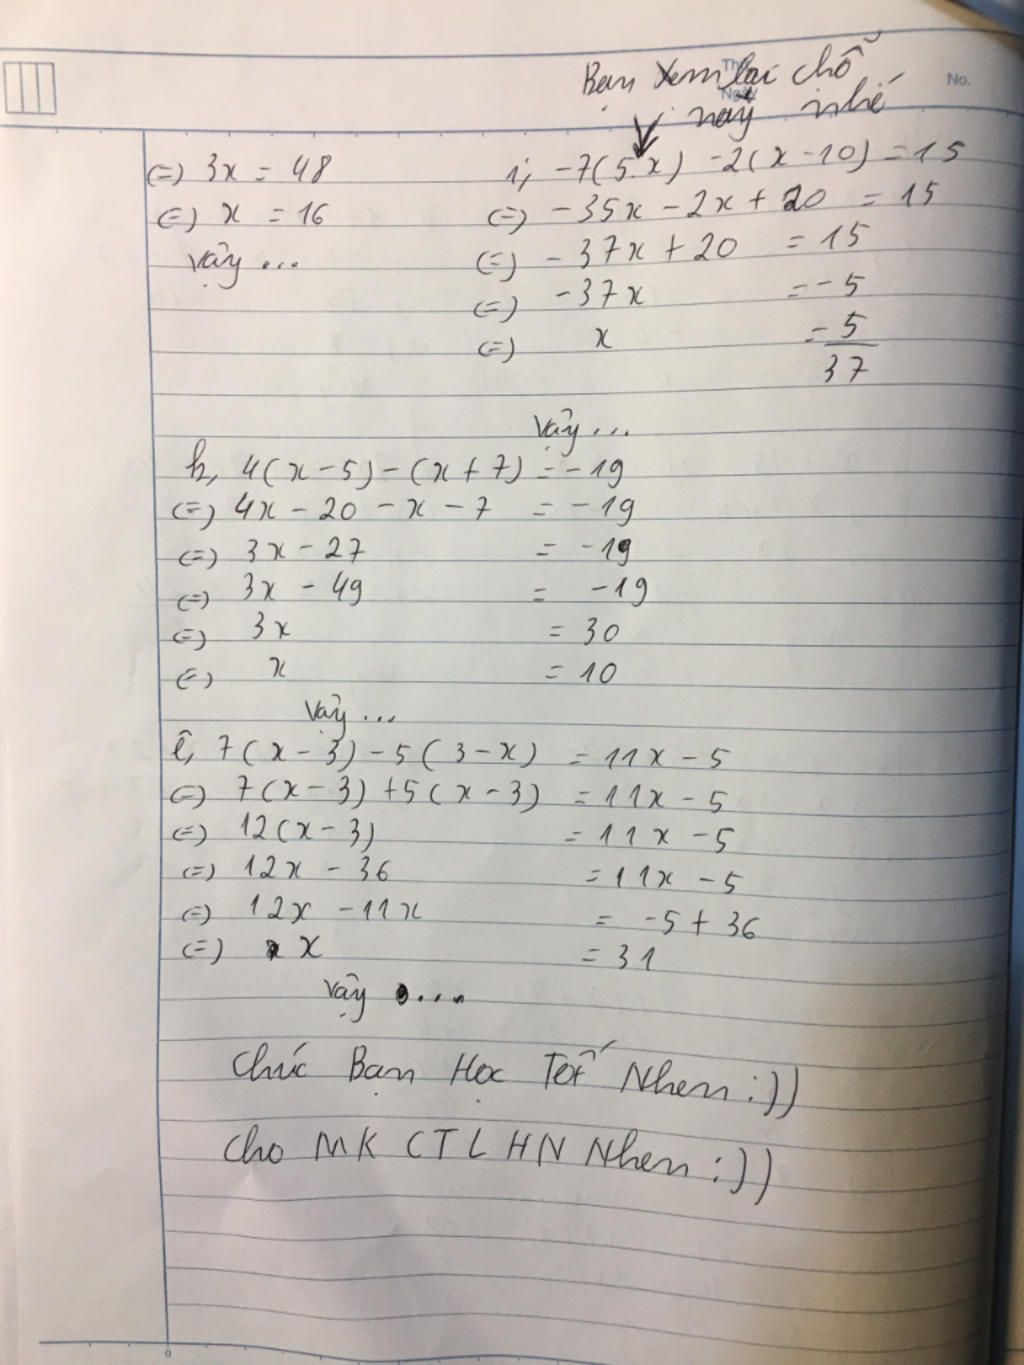 Bạn xem lại chỗ
này nhé
No.
(=) 3x = 48
(=) x = 16
vậy ...
i, -7(5.x) -2(x-10) = 15
(=) -35x - 2x + 20 = 15
(=) -37x + 20 = 15
(=) -37x = -5
(=) x = 5/37
vậy ...
k, 4(x-5) - (x+7) = -19
(=) 4x - 20 - x - 7 = -19
(=) 3x - 27 = -19
(=) 3x - 49 = -19
(=) 3x = 30
(=) x = 10
vậy ...
l, 7(x-3) - 5(3-x) = 11x - 5
(=) 7(x-3) + 5(x-3) = 11x - 5
(=) 12(x-3) = 11x - 5
(=) 12x - 36 = 11x - 5
(=) 12x - 11x = -5 + 36
(=) x = 31
vậy ....
Chúc Bạn Học Tốt Nhen :))
Cho MK CTLHN Nhen :))
0